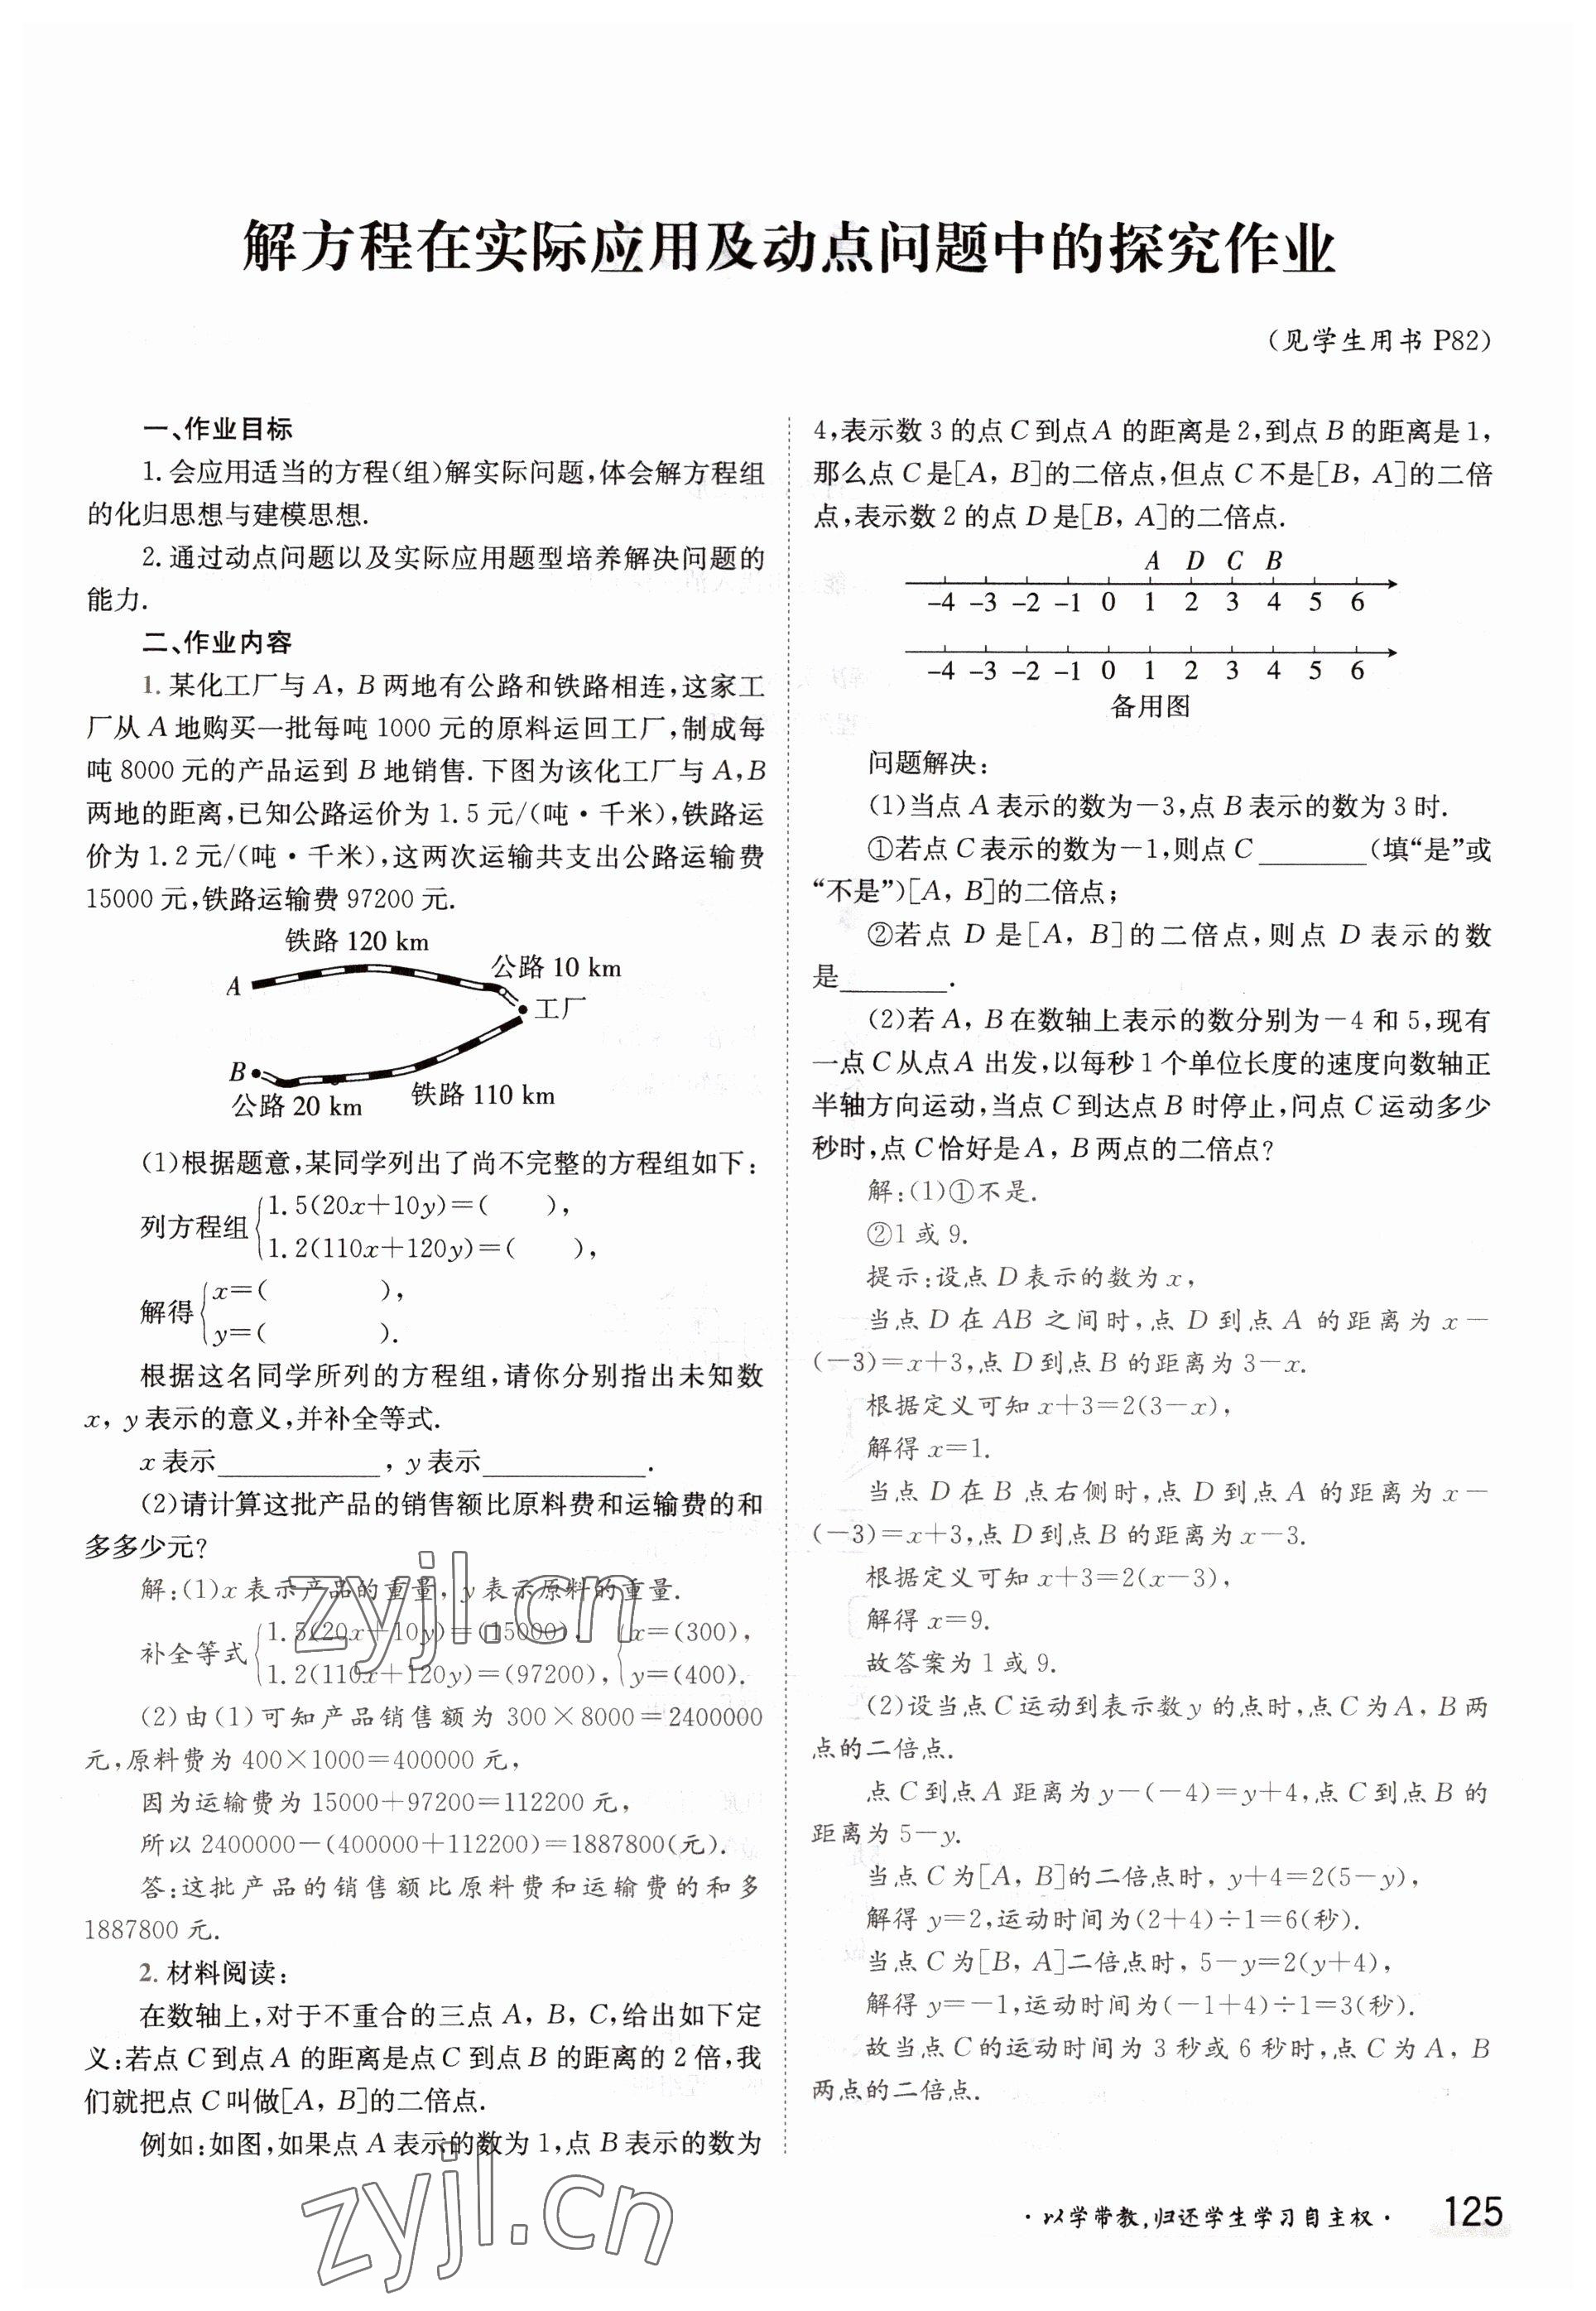 解方程在实际应用及动点问题中的探究作业
(见学生用书 P82)
一、作业目标
1. 会应用适当的方程(组)解实际问题,体会解方程组
的化归思想与建模思想.
2. 通过动点问题以及实际应用题型培养解决问题的
能力.
二、作业内容
1. 某化工厂与 A, B 两地有公路和铁路相连,这家工
厂从 A 地购买一批每吨 1000 元的原料运回工厂,制成每
吨 8000 元的产品运到 B 地销售. 下图为该化工厂与 A,B
两地的距离,已知公路运价为 1.5 元/(吨·千米),铁路运
价为 1.2 元/(吨·千米),这两次运输共支出公路运输费
15000 元,铁路运输费 97200 元.
铁路 120 km
公路 10 km
A
工厂
B
公路 20 km
铁路 110 km
(1)根据题意,某同学列出了尚不完整的方程组如下:
列方程组{1.5(20x+10y)=(    ),
1.2(110x+120y)=(    ),
解得{x=(        ),
y=(        ).
根据这名同学所列的方程组,请你分别指出未知数
x, y 表示的意义,并补全等式.
x 表示____________, y 表示____________.
(2)请计算这批产品的销售额比原料费和运输费的和
多多少元?
解:(1)x 表示产品的重量, y 表示原料的重量.
补全等式{1.5(20x+10y)=(15000), {x=(300),
1.2(110x+120y)=(97200), y=(400).
(2)由(1)可知产品销售额为 300×8000=2400000
元,原料费为 400×1000=400000 元,
因为运输费为 15000+97200=112200 元,
所以 2400000-(400000+112200)=1887800(元).
答:这批产品的销售额比原料费和运输费的和多
1887800 元.
2. 材料阅读:
在数轴上,对于不重合的三点 A, B, C,给出如下定
义:若点 C 到点 A 的距离是点 C 到点 B 的距离的 2 倍,我
们就把点 C 叫做[A, B]的二倍点.
例如:如图,如果点 A 表示的数为 1,点 B 表示的数为
4,表示数 3 的点 C 到点 A 的距离是 2,到点 B 的距离是 1,
那么点 C 是[A, B]的二倍点,但点 C 不是[B, A]的二倍
点,表示数 2 的点 D 是[B, A]的二倍点.
A D C B
-4 -3 -2 -1 0 1 2 3 4 5 6
-4 -3 -2 -1 0 1 2 3 4 5 6
备用图
问题解决:
(1)当点 A 表示的数为-3,点 B 表示的数为 3 时.
①若点 C 表示的数为-1,则点 C ________(填“是”或
“不是”)[A, B]的二倍点;
②若点 D 是[A, B]的二倍点,则点 D 表示的数
是________.
(2)若 A, B 在数轴上表示的数分别为-4 和 5,现有
一点 C 从点 A 出发,以每秒 1 个单位长度的速度向数轴正
半轴方向运动,当点 C 到达点 B 时停止,问点 C 运动多少
秒时,点 C 恰好是 A, B 两点的二倍点?
解:(1)①不是.
②1 或 9.
提示:设点 D 表示的数为 x,
当点 D 在 AB 之间时,点 D 到点 A 的距离为 x-
(-3)=x+3,点 D 到点 B 的距离为 3-x.
根据定义可知 x+3=2(3-x),
解得 x=1.
当点 D 在 B 点右侧时,点 D 到点 A 的距离为 x-
(-3)=x+3,点 D 到点 B 的距离为 x-3.
根据定义可知 x+3=2(x-3),
解得 x=9.
故答案为 1 或 9.
(2)设当点 C 运动到表示数 y 的点时,点 C 为 A, B 两
点的二倍点.
点 C 到点 A 距离为 y-(-4)=y+4,点 C 到点 B 的
距离为 5-y.
当点 C 为[A, B]的二倍点时, y+4=2(5-y),
解得 y=2,运动时间为(2+4)÷1=6(秒).
当点 C 为[B, A]二倍点时, 5-y=2(y+4),
解得 y=-1,运动时间为(-1+4)÷1=3(秒).
故当点 C 的运动时间为 3 秒或 6 秒时,点 C 为 A, B
两点的二倍点.
zyjl.cn
zyjl.cn
·以学带教,归还学生学习自主权· 125